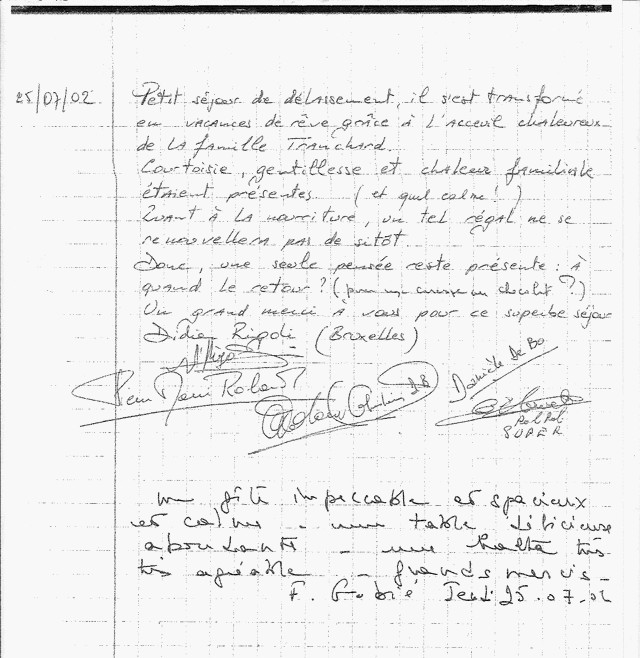 25/07/02. Petit séjour de délassement, il s'est transformé
en vacances de rêve grâce à l'acceuil chaleureux
de la famille Tranchard.
Courtoisie, gentillesse et chaleur familiale
étaient présentes. (et quel calme!)
Quant à la nourriture, un tel régal ne se
renouvellera pas de sitôt.
Donc, une seule pensée reste présente: à
quand le retour? (pour un au chocolat?)
Un grand merci à vous pour ce superbe séjour
Didier Rigoli (Bruxelles)
Danièle De Bo
SUPER
un gîte impeccable et spacieux
et calme - une table délicieuse
abondante - une halte très
très agréable - grands mercis -
F. 25.07.02